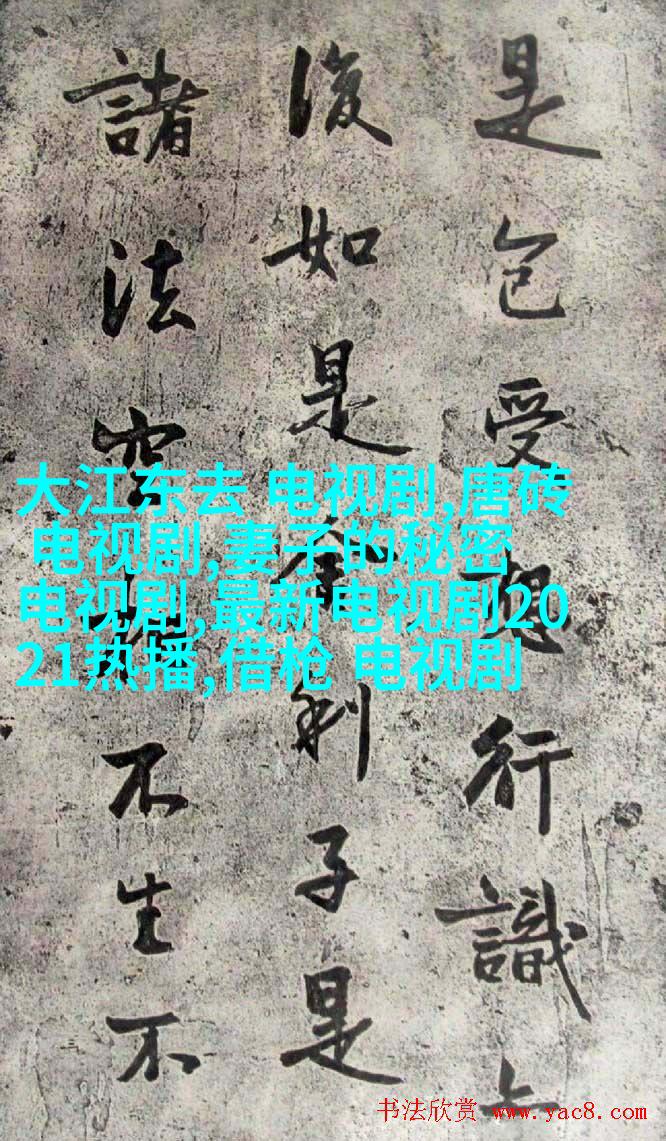 是色受想行識
復如是舍利子是
諸法空不生不
大江东去 电视剧,唐砖
电视剧,妻子的秘密
电视剧,最新电视剧20
21热播,借枪 电视剧
书法欣赏 www.yac8.com